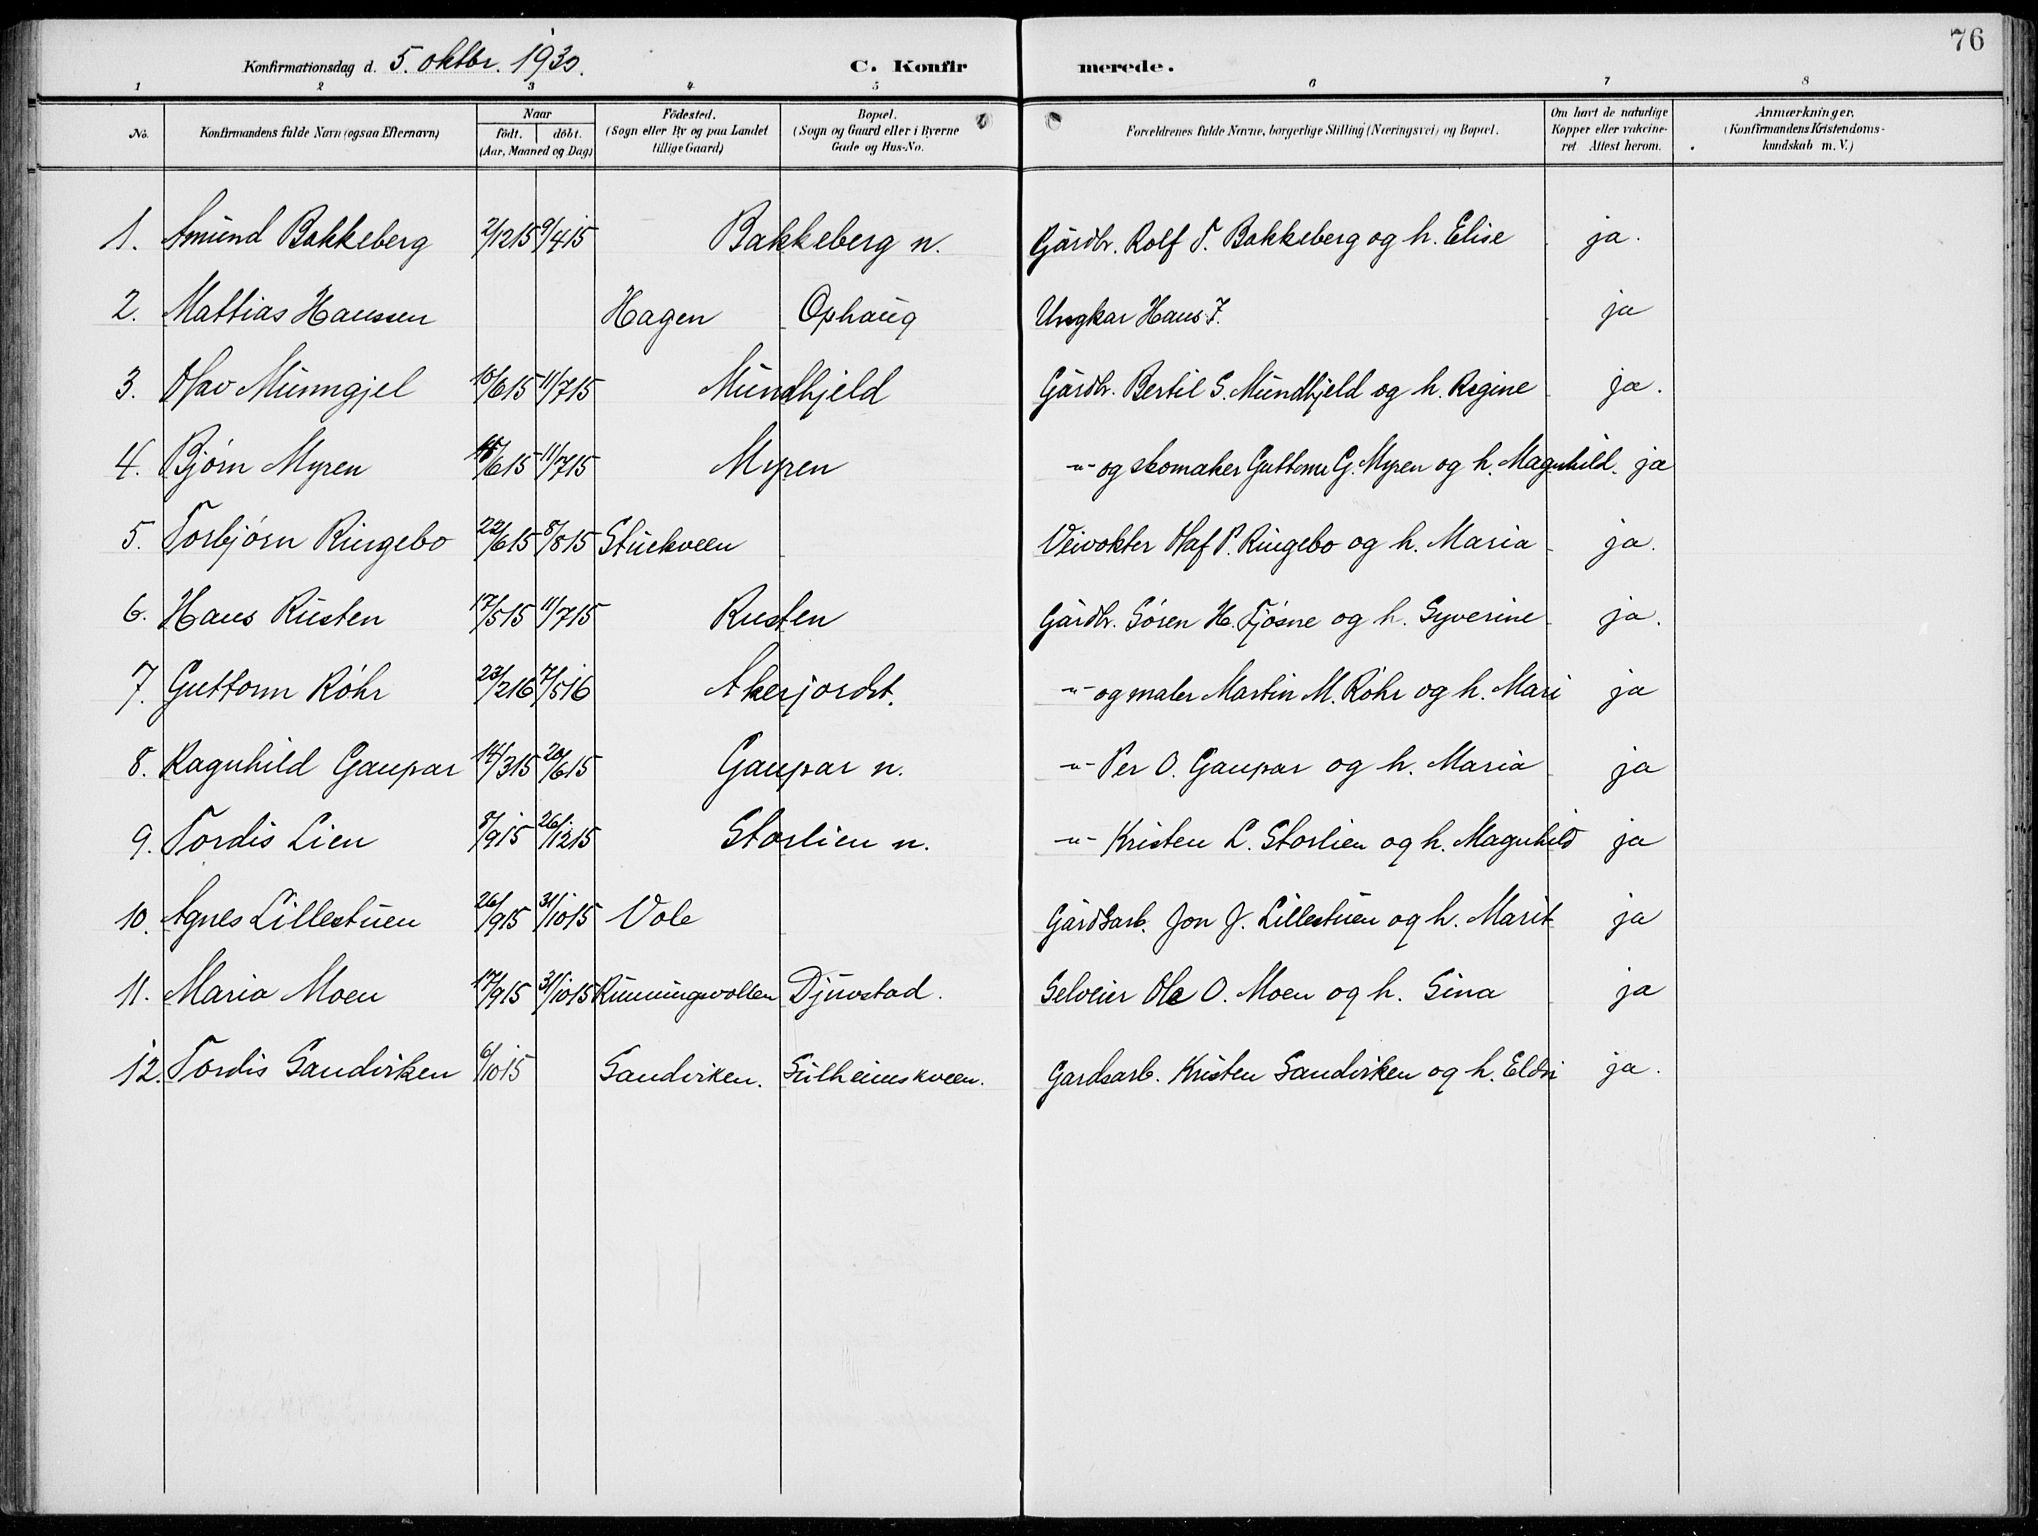 76
Konfirmationsdag d. 5. oktbr. 1930. C. Konfirmerede.
1 2 3 4 5 6 7 8
No. Konfirmandens fulde Navn (ogsaa Efternavn) Naar født. døbt. (Aar, Maaned og Dag) Födested. (Sogn eller By og paa Landet tillige Gaard) Bopæl. (Sogn og Gaard eller i Byerne Gade og Hus-No. Forældrenes fulde Navne, borgerlige Stilling (Næringsvei) og Bopæl. Om havt de naturlige Kopper eller vakcineret. Attest herom. Anmærkninger. (Konfirmandens Kristendomskundskab m. V.)
1. Amund Bakkeberg 2/1215 9/415 Bakkeberg n. Gårdbr. Rolf T. Bakkeberg og h. Elise ja.
2. Mattias Hanssen Hagen Ophaug Ungkar Hans J. ja
3. Olav Munngjel 10/615 11/715 Mundhjeld Gårdbr. Bertil S. Mundhjeld og h. Regine ja.
4. Bjørn Myren /615 11/715 Myren -"- og skomaker Guttorm G. Myren og h. Magnhild. ja
5. Torbjørn Ringebo 22/615 8/815 Stuekveen Veivokter Olaf P. Ringebo og h. Maria ja.
6. Hans Rusten 17/515 11/715 Rusten Gårdbr. Søren H. Tjøsne og h. Syverine ja.
7. Guttorm Røhr 23/216 7/516 Akerjordst. -"- og maler Martin M. Røhr og h. Mari ja
8. Ragnhild Gaupar 14/315 20/615 Gaupar n. -"- Per O. Gaupar og h. Maria ja
9. Tordis Lien 8/915 26/1215 Storlien n. -"- Kristen L. Storlien og h. Magnhild ja
10. Agnes Lillestuen 26/915 31/1015 Vole Gårdsarb. Jon J. Lillestuen og h. Marit ja
11. Maria Moen 17/915 31/1015 Runningsvollen Djuvstad. Selveier Ole O. Moen og h. Sina ja
12. Tordis Sandviken 6/1015 Sandviken. Sulheimskveen. Gardsarb. Kristen Sandviken og h. Eldri ja.